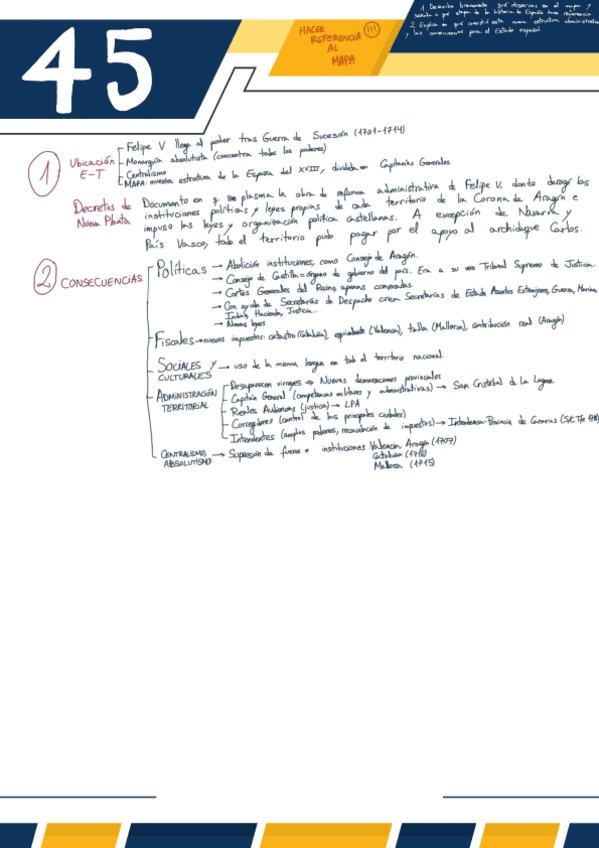 45
HACER
REFERENCIA
AL
MAPA
!!!
1. Describe brevemente qué observas en el mapa y
señala a qué etapa de la historia de España hace referencia
2. Explica en qué consistió esta nueva estructura administrativa
y las consecuencias para el Estado español.
1
Ubicación
E-T
Felipe V llega al poder tras Guerra de Sucesión (1701-1714)
Monarquía absolutista (concentra todos los poderes)
Centralismo
MAPA: muestra estructura de la España del XVIII, dividida en Capitanías Generales.
Decretos de
Nueva Planta
Documento en q se plasma la obra de reforma administrativa de Felipe V, donde deroga las
instituciones políticas y leyes propias de cada territorio de la Corona de Aragón e
impuso las leyes y organización política castellanas. A excepción de Navarra y
País Vasco, todo el territorio pudo pagar por el apoyo al archiduque Carlos.
2
CONSECUENCIAS
Políticas → Abolición instituciones, como Consejo de Aragón.
→ Consejo de Castilla = órgano de gobierno del país. Era a su vez Tribunal Supremo de Justicia.
→ Cortes Generales del Reino, apenas convocadas.
→ Con ayuda de Secretarías de Despacho crean Secretarías de Estado Asuntos Extranjeros, Guerra, Marina,
Indias, Hacienda, Justicia...
→ Nuevas leyes
Fiscales → nuevos impuestos: catastro (Cataluña), equivalente (Valencia), talla (Mallorca), contribución real (Aragón)
SOCIALES Y
CULTURALES
→ uso de la misma lengua en todo el territorio nacional.
ADMINISTRACIÓN
TERRITORIAL
Desaparecen virreyes → Nuevas demarcaciones provinciales
Capitán General (competencias militares y administrativas) → San Cristóbal de La Laguna.
Reales Audiencias (justicia) → LPA
Corregidores (control de las principales ciudades)
Intendentes (amplios poderes, recaudación de impuestos) → Intendencia Provincia de Canarias
CENTRALISMO,
ABSOLUTISMO
→ Supresión de fueros e instituciones Valencia, Aragón (1707)
Cataluña (1716)
Mallorca (1715)